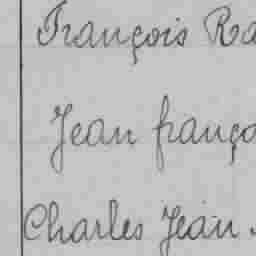 François Ra
Jean franço
Charles Jean